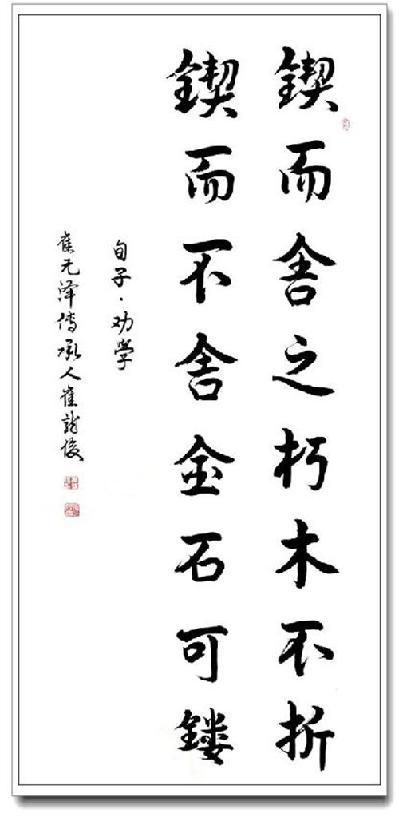 锲而舍之朽木不折
锲而不舍金石可镂
旬子·劝学
崔元泽传承人崔